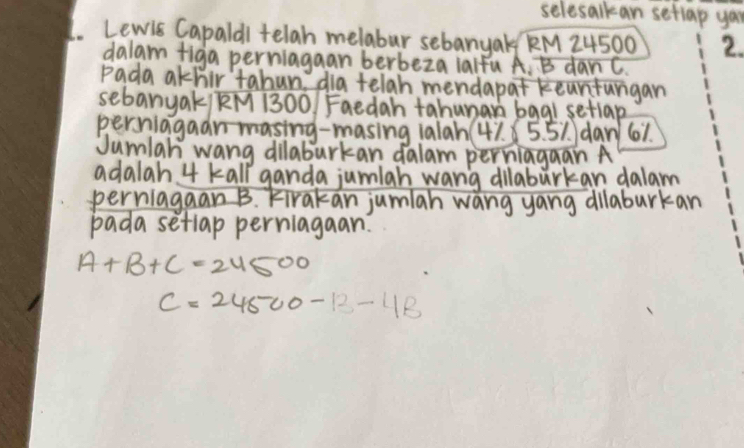 selesaikan setiap
1. Lewis Capaldi telah melabur sebanyak RM 24500
2.
dalam tiga perniagaan berbeza iaitu A, B dan C.
Pada akhir tahun, dia telah mendapat keuntungan
sebanyak RM 1300 Faedah tahunan bagi setiap
perniagaan masing-masing ialah 4% 5.5% dan 6%.
Jumlah wang dilaburkan dalam perniagaan A
adalah 4 kali ganda jumlah wang dilaburkan dalam
perniagaan B. Kirakan jumlah wang yang dilaburkan
pada setiap perniagaan.
A+B+C = 24500
C = 24500 - B - 4B